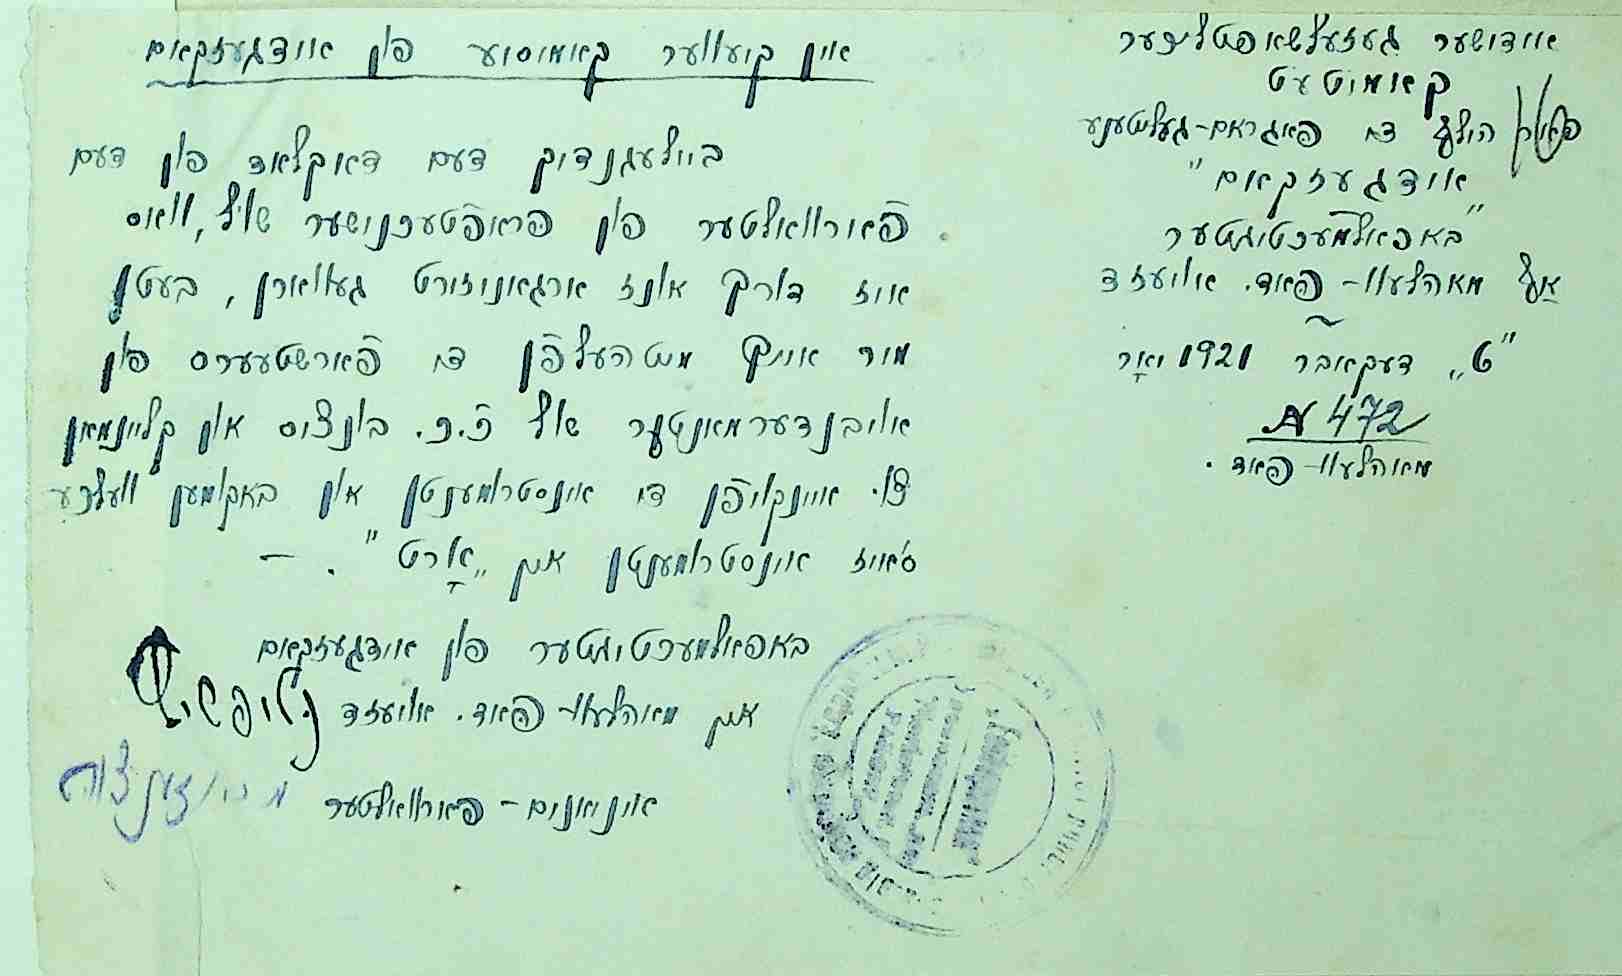 אידישער געזעלשאפטליכער
קאמיטעט
הילף די פאגראם-געליטענע
"אידגעזקאם"
באפולמעכטיגטער
אַף מאהלעוו-פאד. אויעזד
"ט" דעקאבר 1921 יאָר
№ 472
מאהלעוו-פאד.
אין קיעווער קאמיסיע פון אידגעזקאם
ביילעגנדיק דעם דאקלאד פון דעם
פֿארוואלטער פון פראפֿטעכנישער שול, וואס
איז דורך אונז ארגאניזירט געווארן, בעטן
מיר אייך מיטהעלפֿן די פֿארשטעערס פון
אויבנדערמאנטער שול ח.ח. בונציס און קליינמאן
צו איינקויפֿן די אינסטרומענטן און באקומען וועלכע
ס'איז אינסטרומענטן אין "אָרט". —
באפולמעכטיגטער פון אידגעזקאם
אין מאהלעוו-פאד. אויעזד
אינייאנים-פארוואלטער